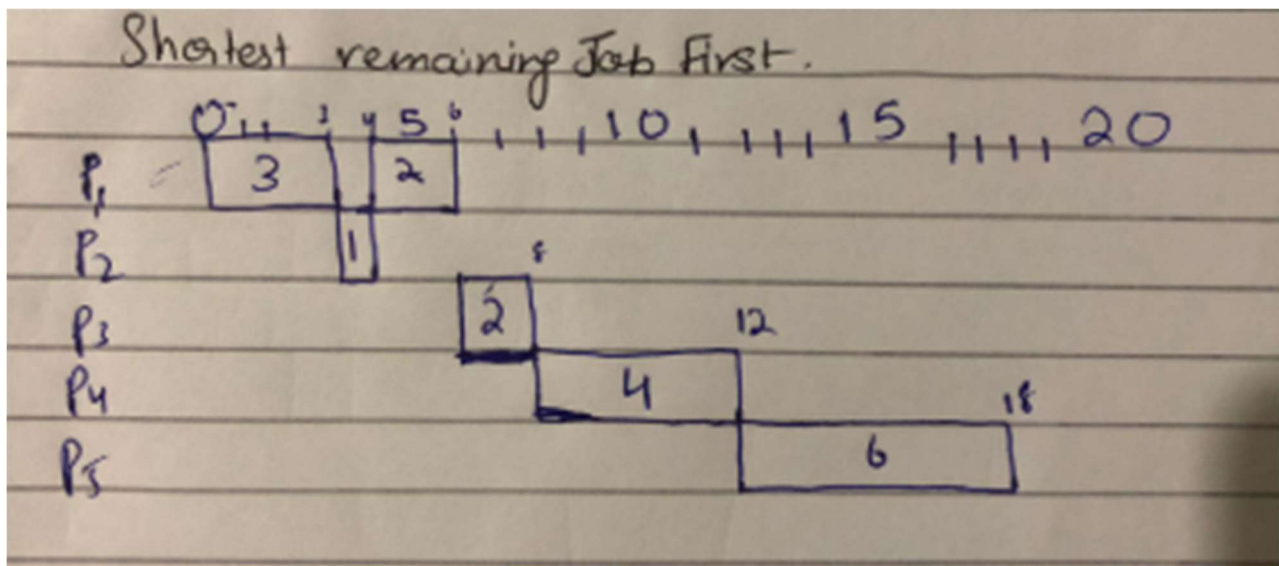 Shortest remaining Job First.
0 3 4 5 6 10 15 20
P1 3 2
P2 1 8
P3 2 12
P4 4 18
P5 6